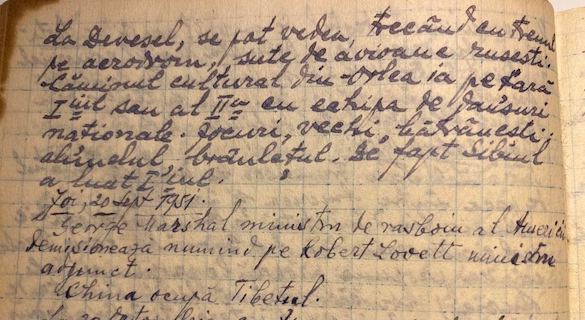 La Devesel, se pot vedea, trecând cu trenul
pe aerodrom, sute de avioane rusești.
Căminul cultural din Orlea ia pe țară
I iul sau al II lea cu echipa de dansuri
naționale. Jocuri, vechi, bătrânești:
alunelul, brâulețul. De fapt Sibiul
a luat I iul.
Joi, 20 sept 1951.
George Marshal ministru de rasboiu al Americii
demisionează numind pe Robert Lovett ministru
adjunct.
China ocupă Tibetul.